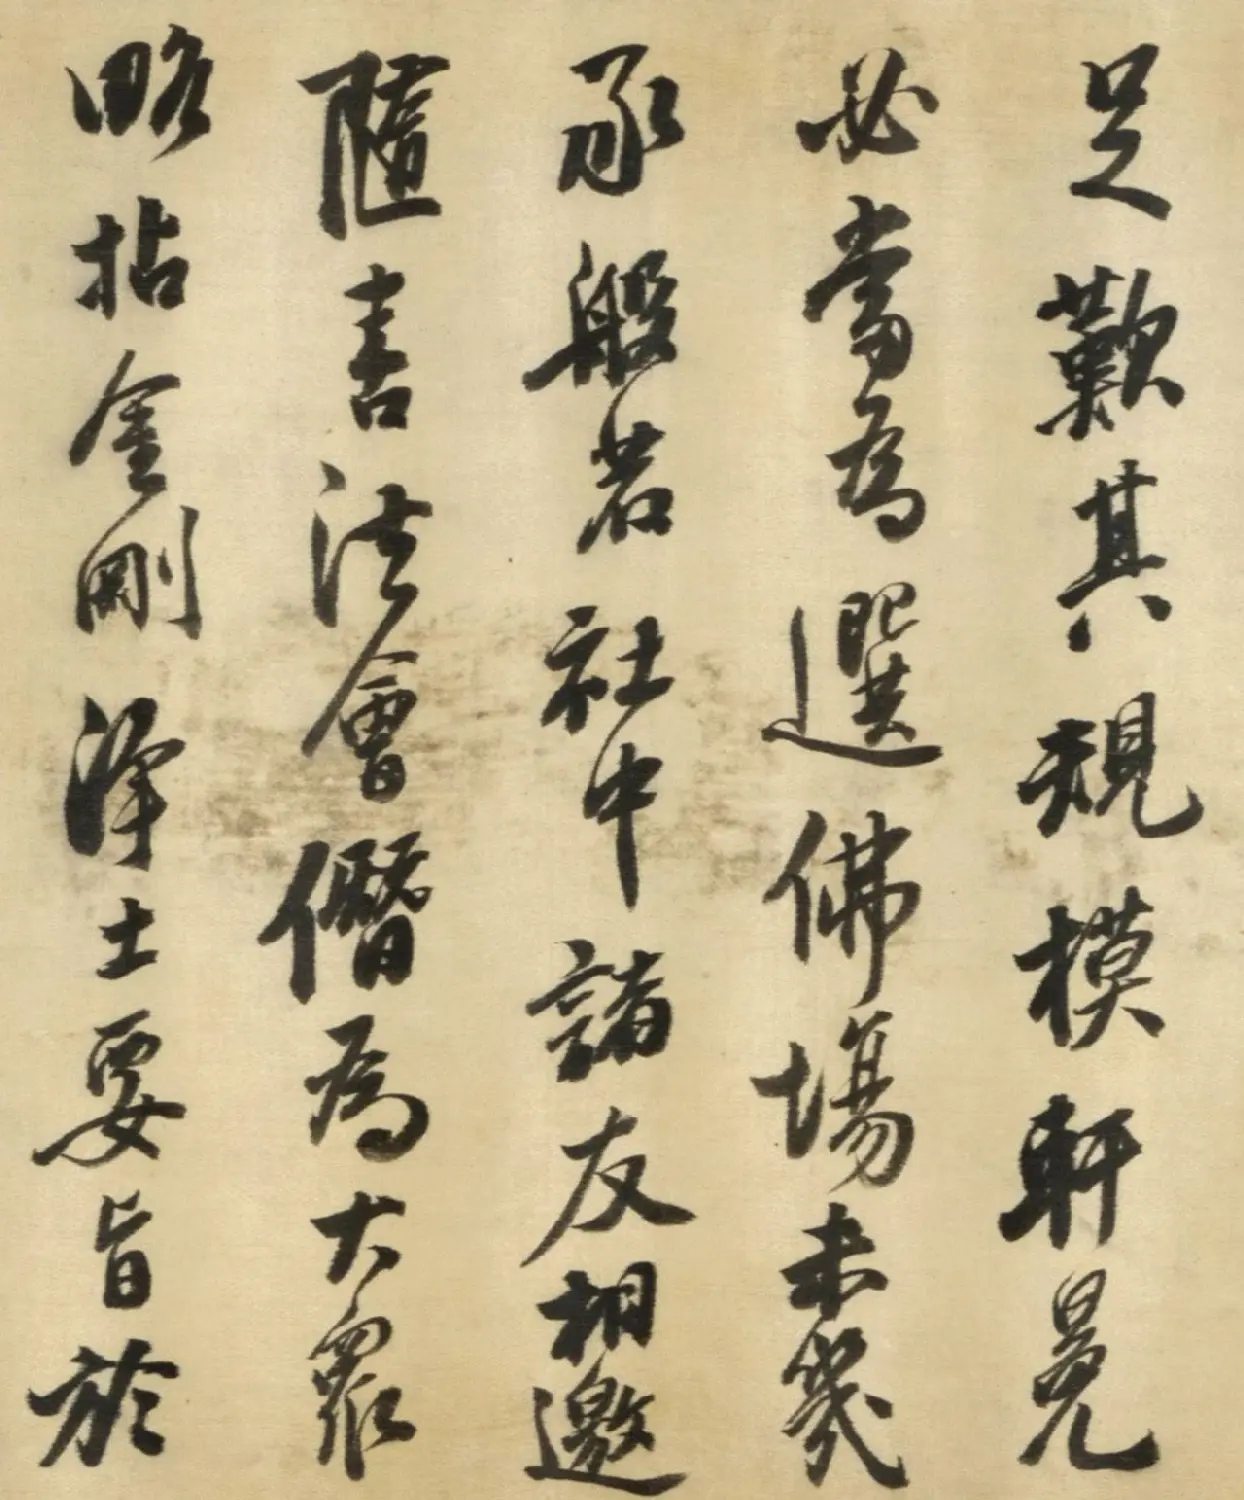 足歎其規模軒晃
必當為選佛場未幾
承般若社中諸友相邀
隨喜法會僭為大眾
略拈金剛淨土要旨於